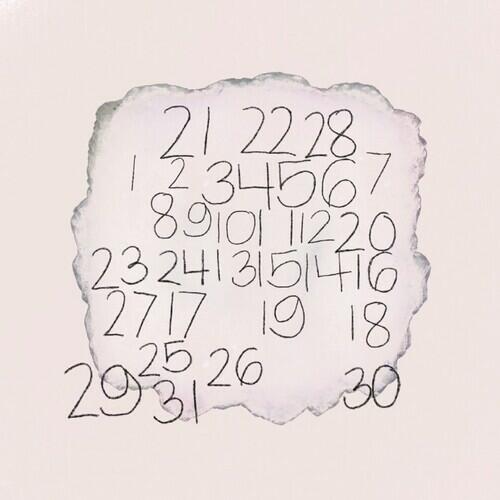 21 22 28
1 2 3 4 5 6 7
8 9 10 11 12 20
23 24 13 15 14 16
27 17 19 18
25 26
29 31 30